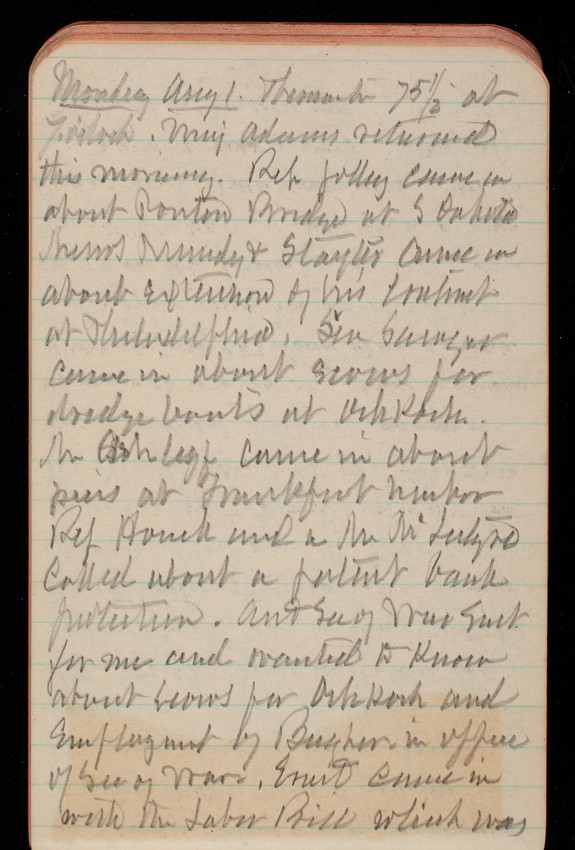 Monday Aug 1. Thermometer 75 1/2 at
7 o'clock. Maj Adams returned
this morning. Rep Jolley came in
about Ponton Bridge at S Dakota
Messrs Mundy & Slaytor came in
about extension of his contract
at Philadelphia. Sen Sawyer
came in about scows for
dredge boats at Oshkosh.
Mr came in about
piers at Frankfort harbor
Rep Houck and a Mr
called about a patent bank
protection. Act Sec of War sent
for me and wanted to know
about scows for Oshkosh and
Employment of in office
of Sec of War. Ernst came in
with the Labor Bill which was